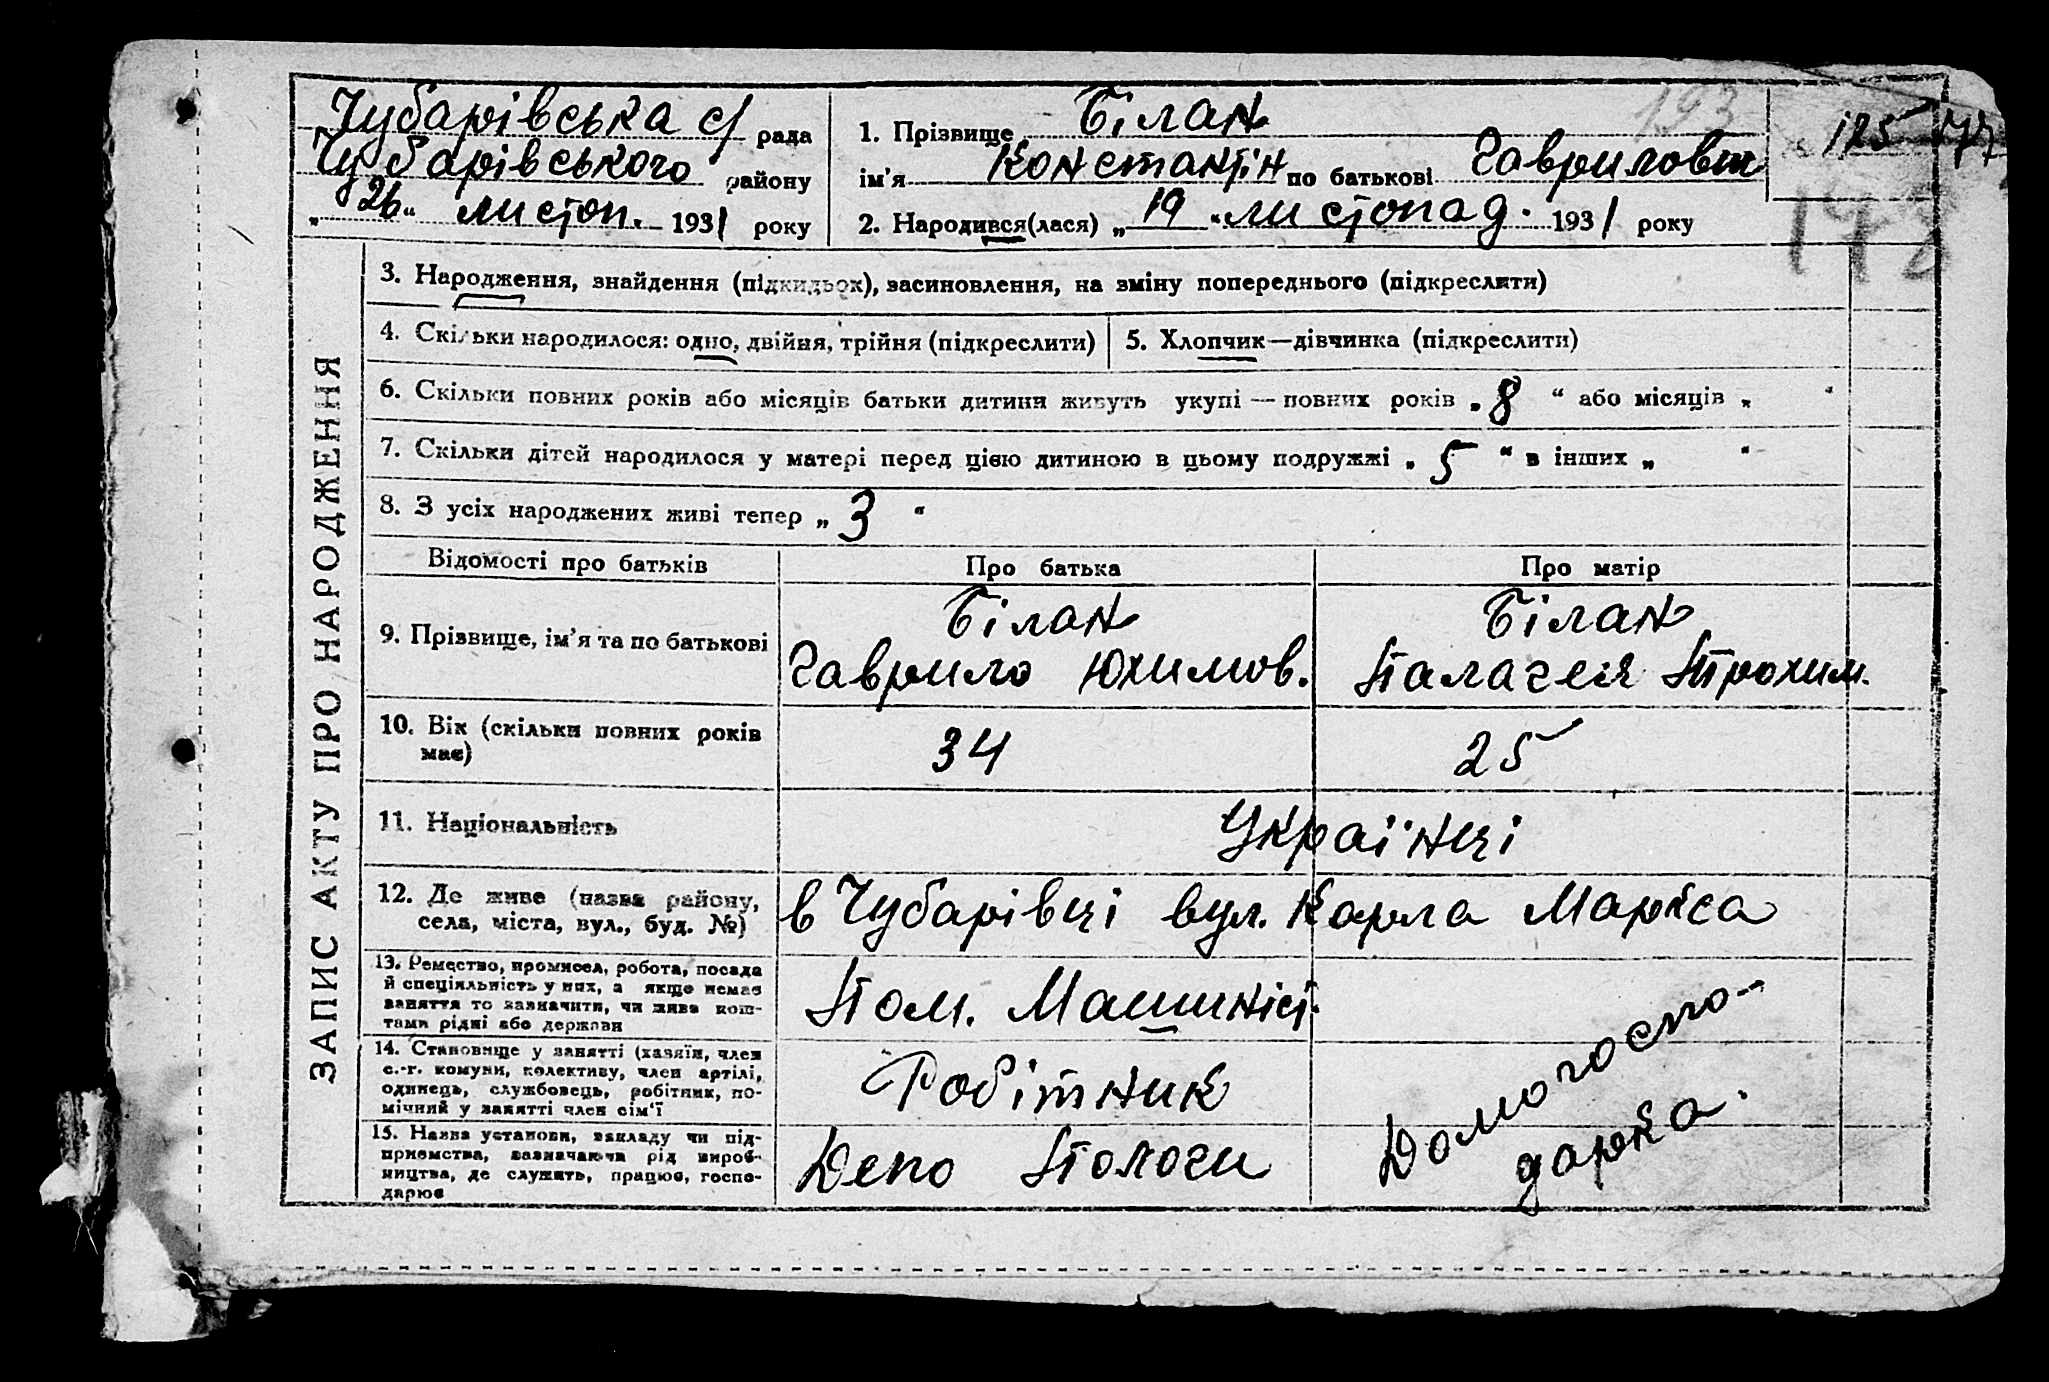 Чубарівська с/ рада
Чубарівського району
„ 26 “ листоп. 1931 року
1. Прізвище Білан
ім'я Константін по батькові Гаврилович
2. Народився(лася) „ 19 “ листопад. 1931 року
193
125
178
ЗАПИС АКТУ ПРО НАРОДЖЕННЯ
3. Народження, знайдення (підкидьок), засиновлення, на зміну попереднього (підкреслити)
4. Скільки народилося: одно, двійня, трійня (підкреслити)
5. Хлопчик—дівчинка (підкреслити)
6. Скільки повних років або місяців батьки дитини живуть укупі — повних років „ 8 “ або місяців „ “
7. Скільки дітей народилося у матері перед цією дитиною в цьому подружжі „ 5 “ в інших „ “
8. З усіх народжених живі тепер „ 3 “
Відомості про батьків
Про батька
Про матір
9. Прізвище, ім'я та по батькові
Білан
Гаврило Юхимов.
Білан
Палагея Трохим.
10. Вік (скільки повних років
має)
34
25
11. Національність
Українці
12. Де живе (назва району,
села, міста, вул., буд. №)
в Чубарівці вул. Карла Маркса
13. Ремество, промисел, робота, посада
й спеціяльність у них, а якщо немає
заняття то зазначити, чи живе кош-
тами рідні або держави
Пом. Машиніст.
14. Становище у занятті (хазяїн, член
с.-г. комуни, колективу, член артілі,
одинець, службовець, робітник, по-
мічний у занятті член сім'ї
Робітник
15. Назва установи, закладу чи під-
приємства, зазначаючи рід вироб-
ництва, де служить, працює, госпо-
дарює
Депо Пологи
Домогоспо-
дарка.